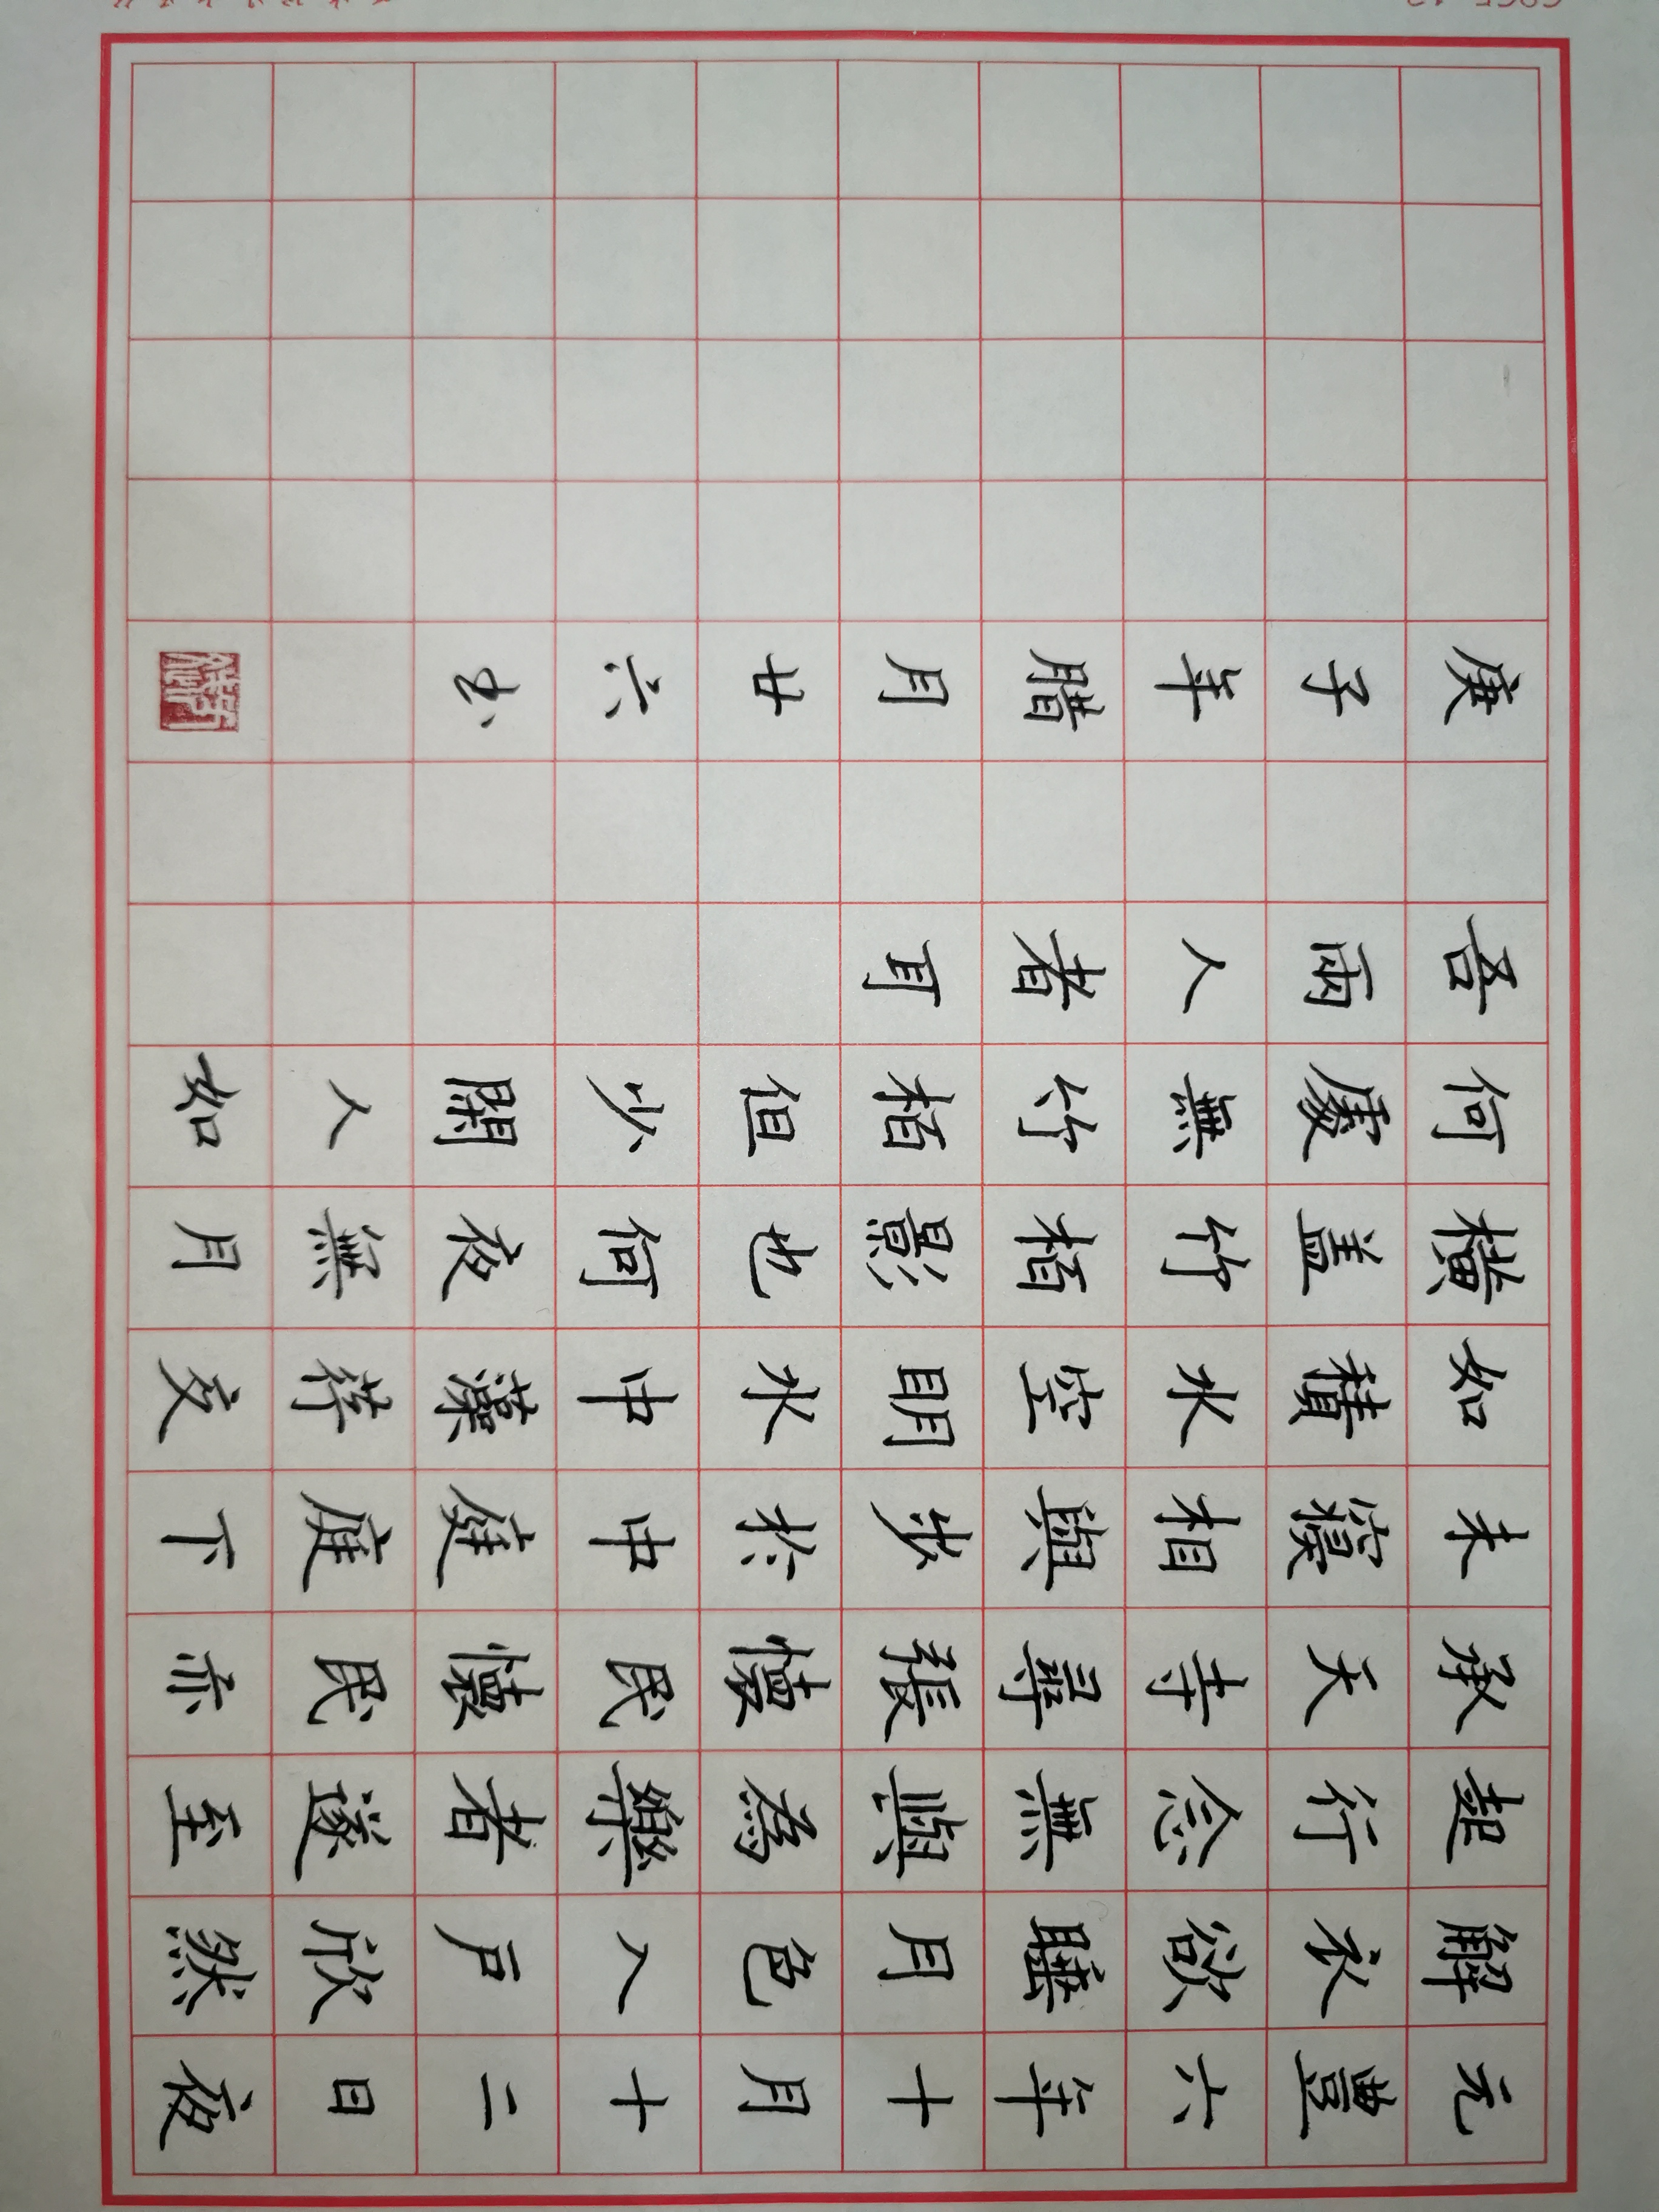 元豐六年十月十二日夜
解衣欲睡月色入户欣然
起行念無與為樂者遂至
承天寺尋張懷民懷民亦
未寢相與步於中庭庭下
如積水空眀水中藻荇交
橫盖竹柏影也何夜無月
何處無竹柏但少閑人如
吾兩人者耳
庚子年腊月廿六书